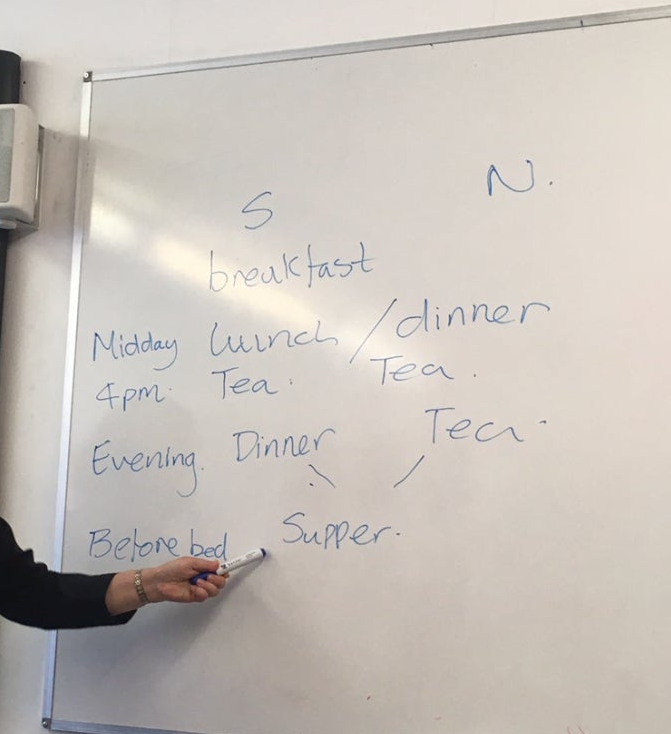 S N.
breakfast
Midday lunch / dinner
4pm. Tea. Tea.
Evening. Dinner Tea.
Before bed Supper.